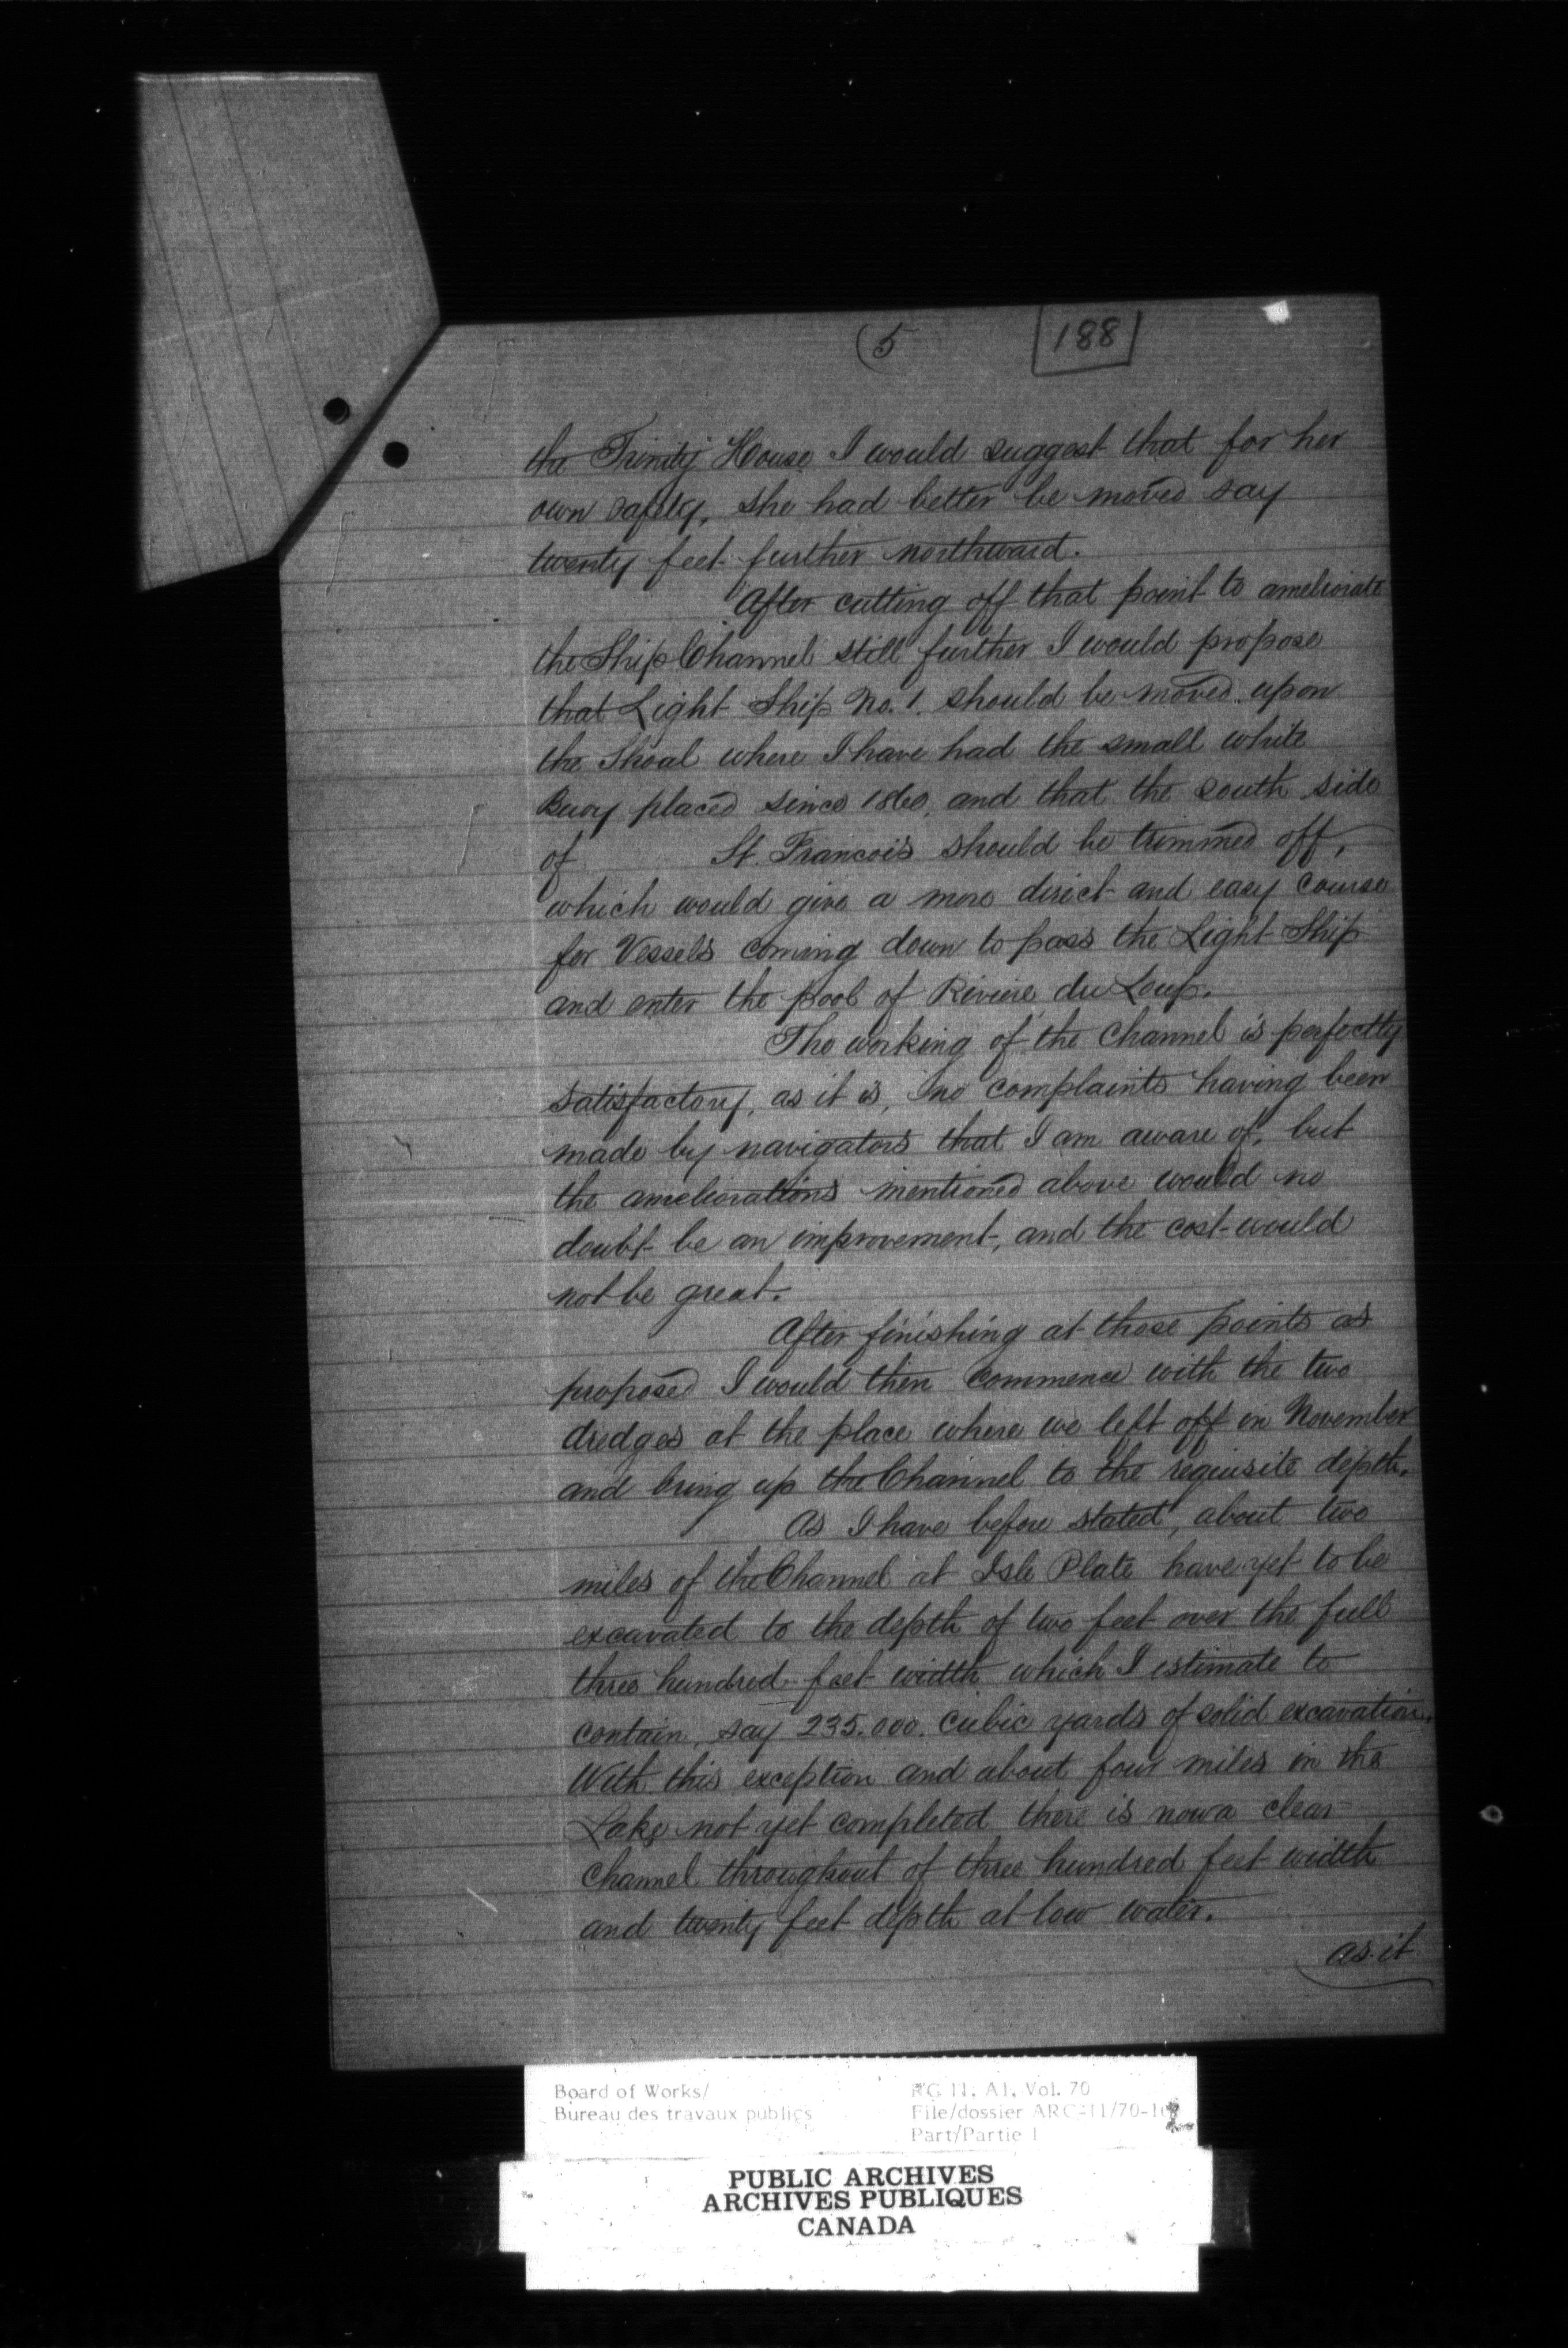 (5
188
the Trinity House I would suggest that for her
own safety, she had better be moved say
twenty feet further northward.
After cutting off that point to ameliorate
the Ship Channel still further I would propose
that Light Ship No. 1. should be moved upon
the Shoal where I have had the small white
Buoy placed since 1860, and that the south side
of St. Francois should be trimmed off,
which would give a more direct and easy course
for Vessels coming down to pass the Light Ship
and enter the pool of Riviere du Loup.
The working of the Channel is perfectly
satisfactory, as it is, no complaints having been
made by navigators that I am aware of, but
the ameliorations mentioned above would no
doubt be an improvement, and the cost would
not be great.
After finishing at those points as
proposed I would then commence with the two
dredges at the place where we left off in November
and bring up the Channel to the requisite depth.
As I have before stated, about two
miles of the Channel at Isle Plate have yet to be
excavated to the depth of two feet over the full
three hundred feet width which I estimate to
contain, say 235.000. cubic yards of solid excavation.
With this exception and about four miles in the
Lake not yet completed there is now a clear
channel throughout of three hundred feet width
and twenty feet depth at low water.
as it
Board of Works/
Bureau des travaux publics
RG 11, A1, Vol. 70
File/dossier ARC-11/70-10
Part/Partie 1
PUBLIC ARCHIVES
ARCHIVES PUBLIQUES
CANADA